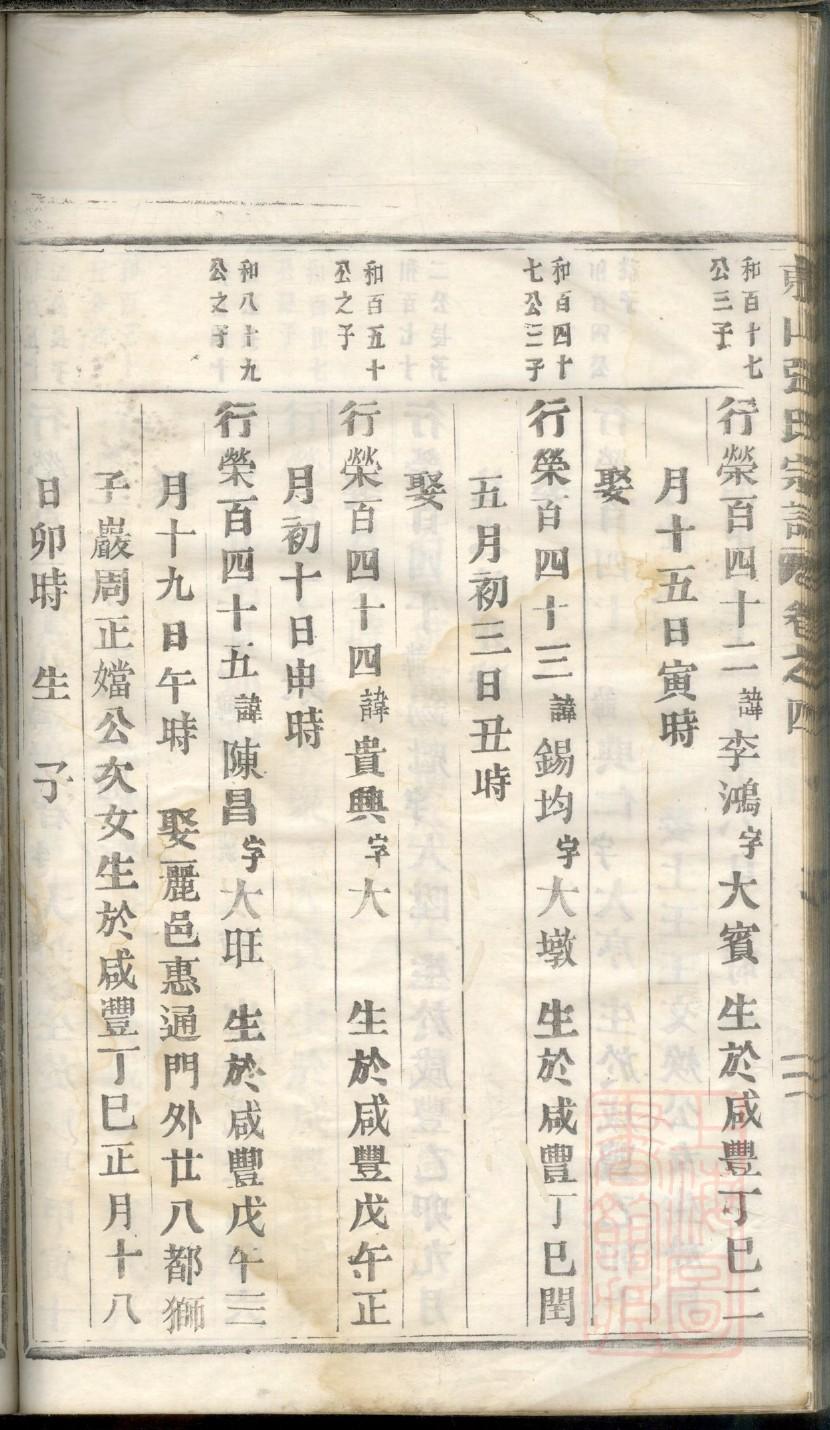 東山張氏宗譜卷之四
和百十七
公三子
行榮百四十二諱李鴻字大賓 生於咸豐丁巳二
月十五日寅時
娶
和百四十
七公三子
行榮百四十三諱錫均字大墩 生於咸豐丁巳閏
五月初三日丑時
娶
和百五十
公之子
行榮百四十四諱貴興字大 生於咸豐戊午正
月初十日申時
和八十九
公之子
行榮百四十五諱陳昌字大旺 生於咸豐戊午三
月十九日午時 娶麗邑惠通門外廿八都獅
子巖周正嬑公次女生於咸豐丁巳正月十八
日卯時 生 子